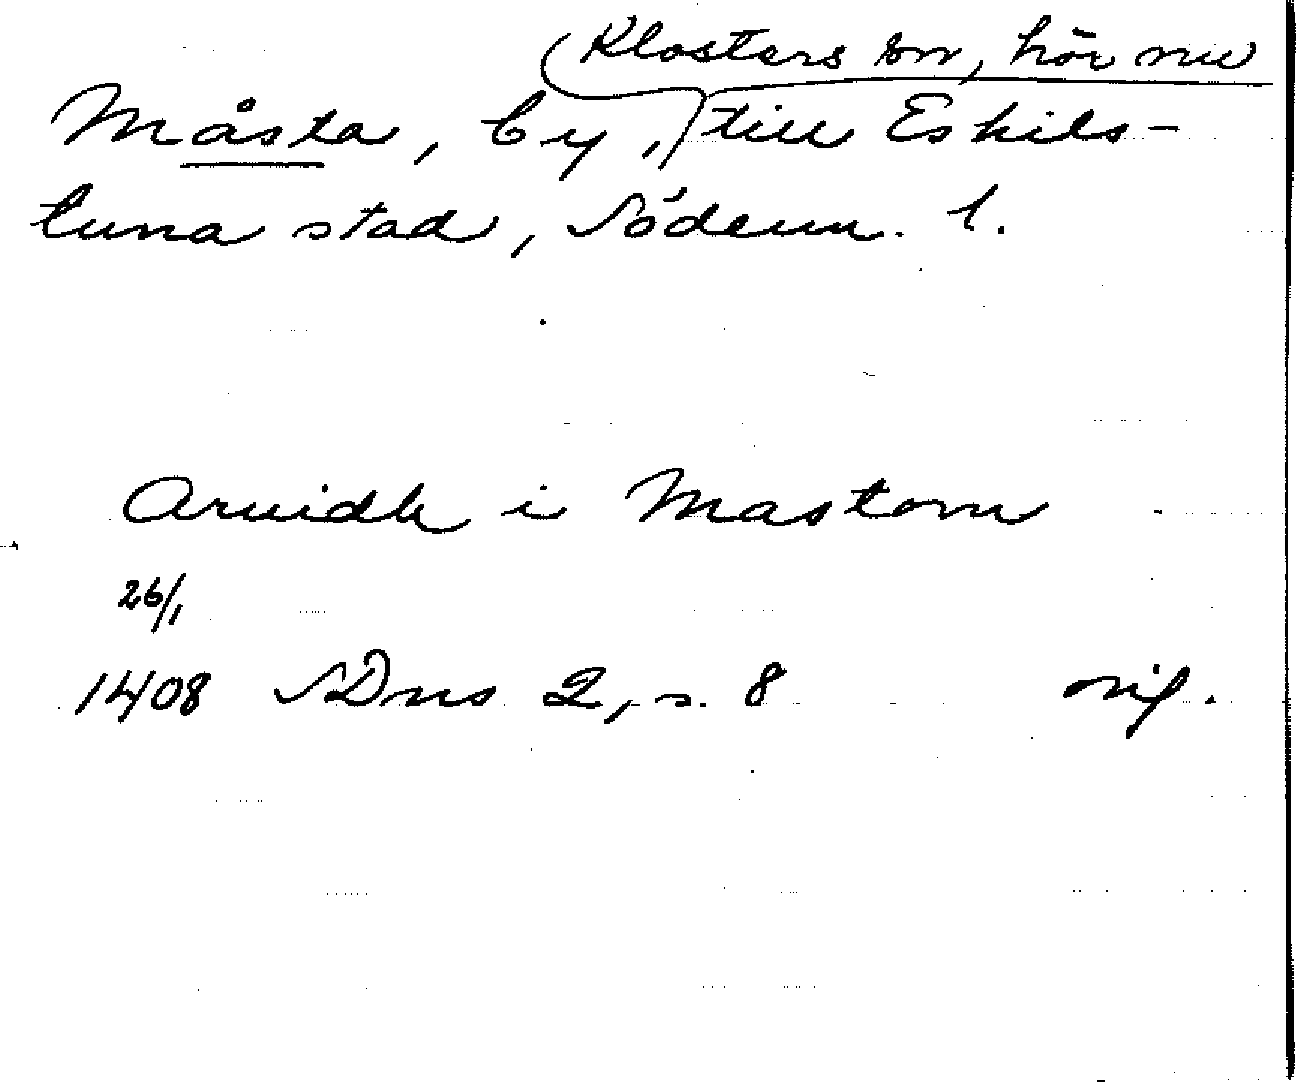 Klosters sn, hör nu
Måsta, by, till Eskils-
tuna stad, Söderm. l.
Arvidh i Mastom
26/1
1408 SDns 2, s. 8 orig.